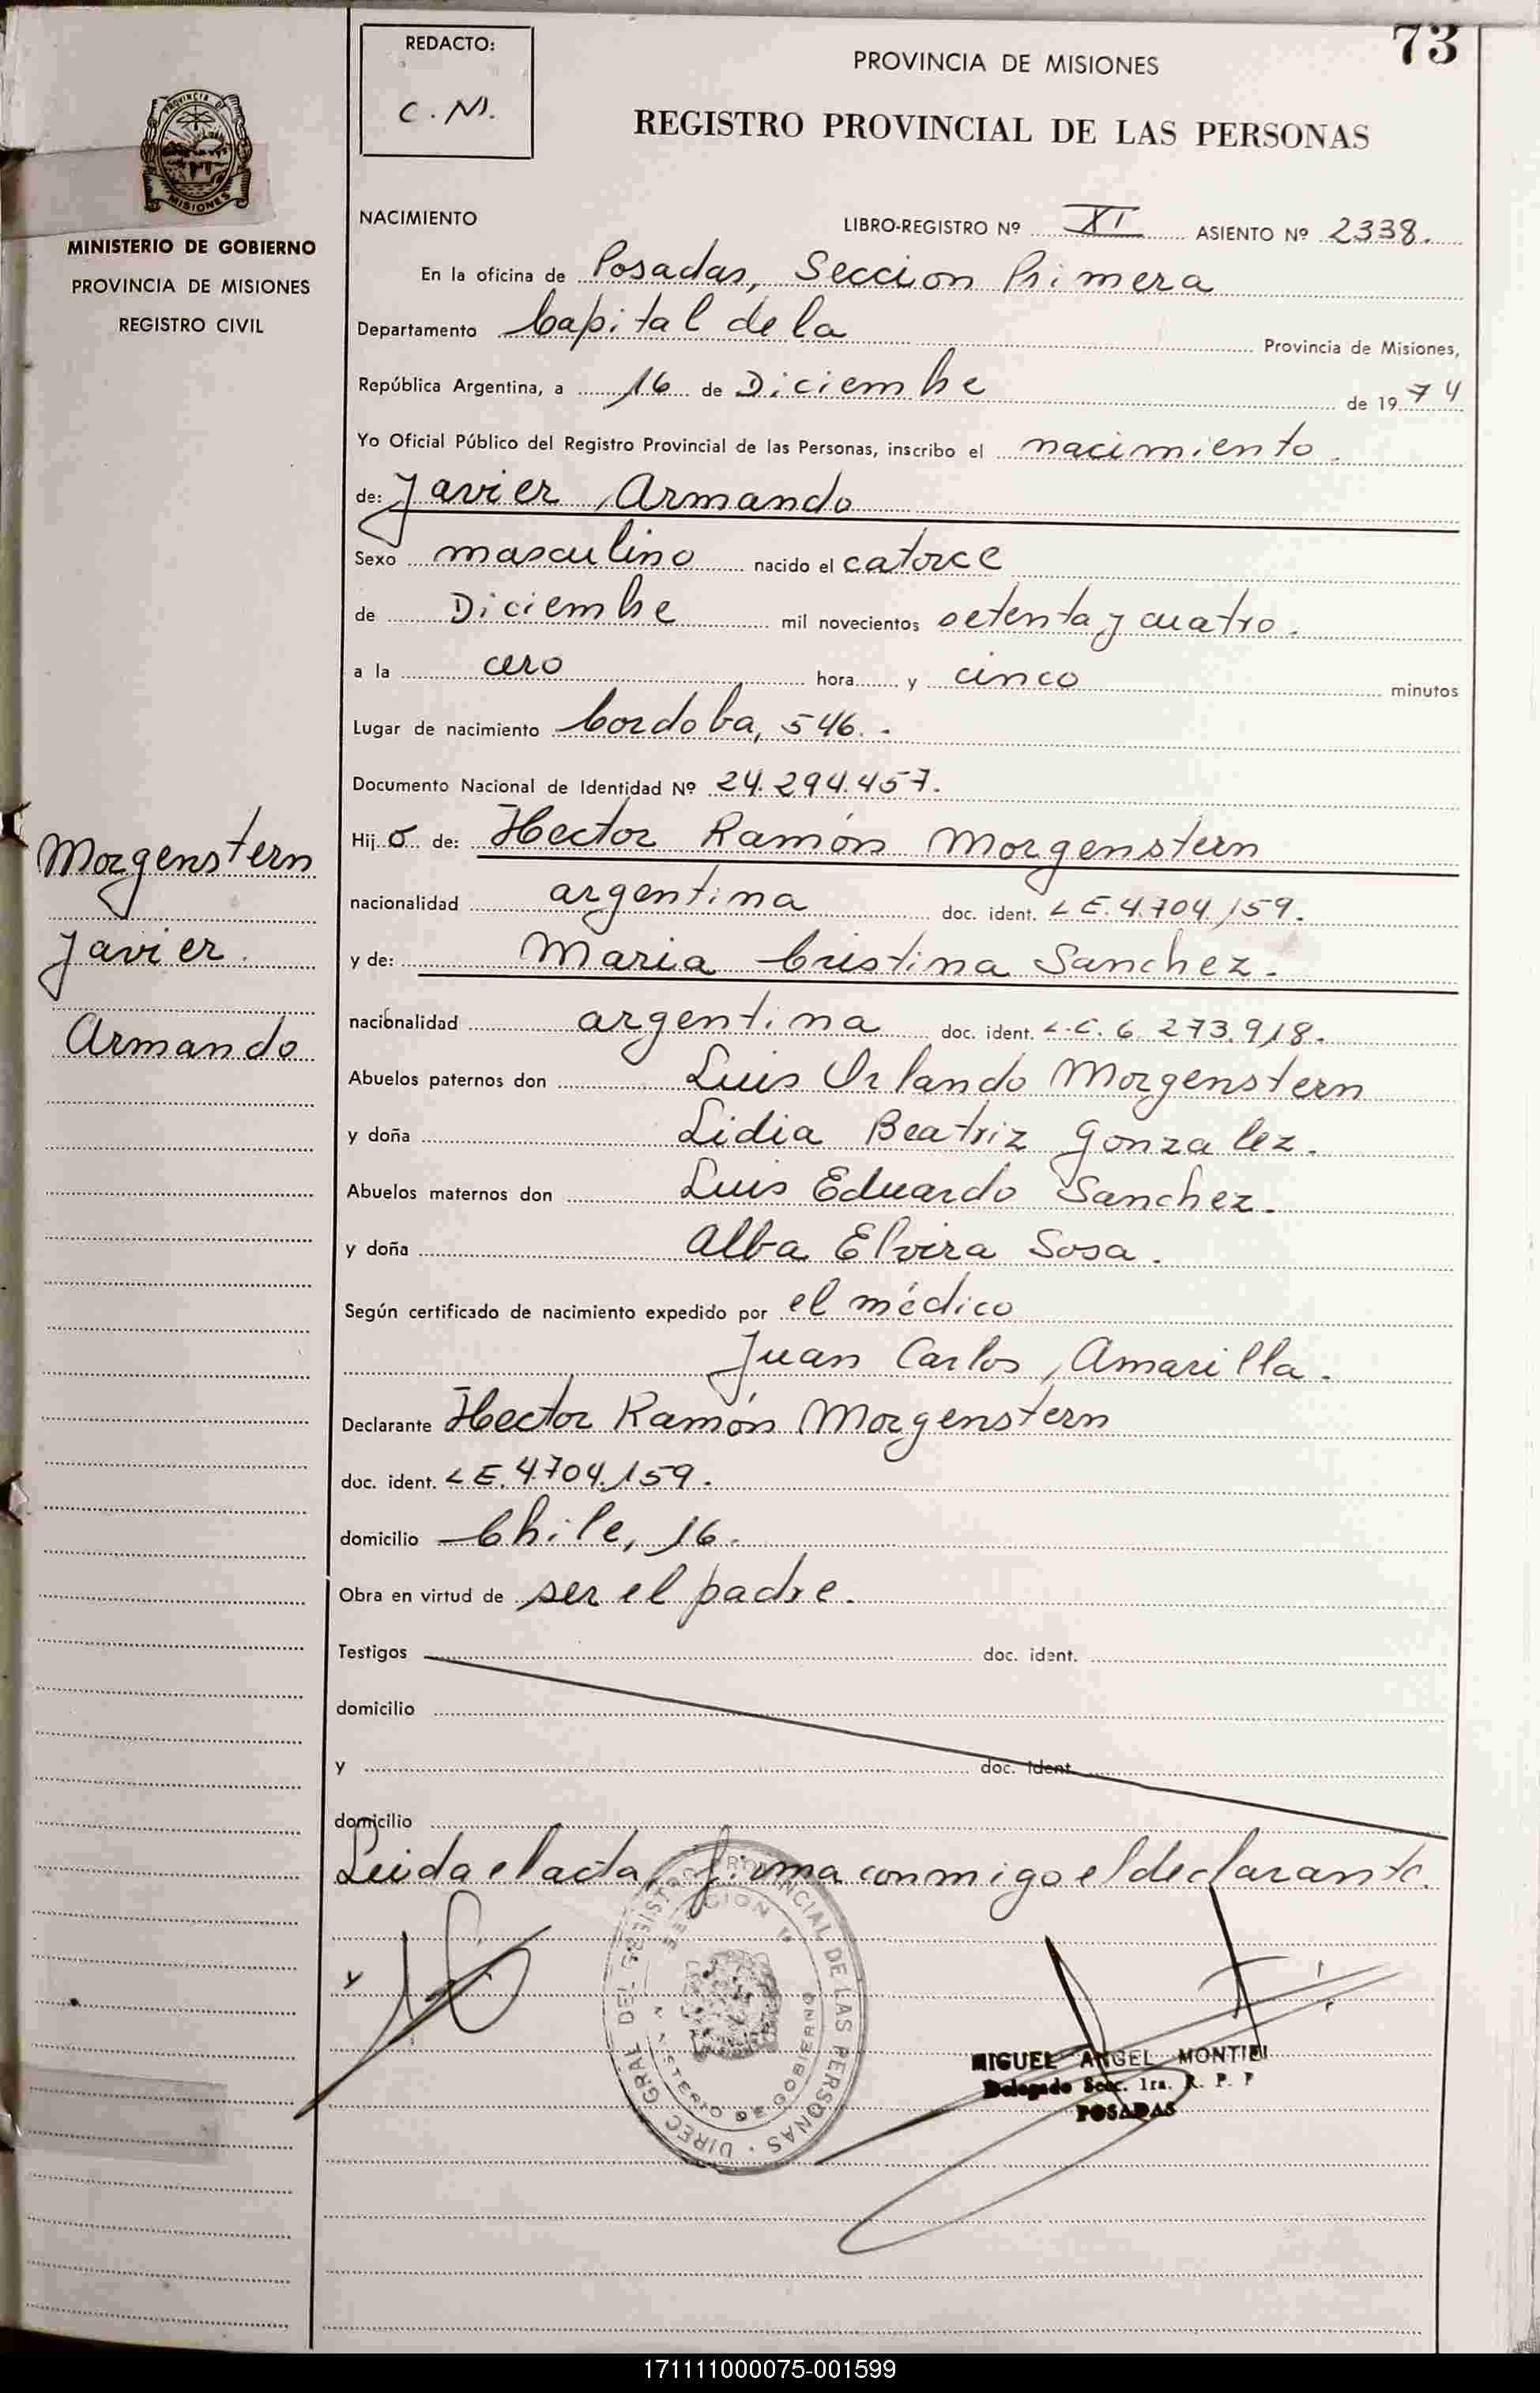 73
REDACTO:
C. N.
PROVINCIA DE MISIONES
REGISTRO PROVINCIAL DE LAS PERSONAS
PROVINCIA DE
MISIONES
MINISTERIO DE GOBIERNO
PROVINCIA DE MISIONES
REGISTRO CIVIL
NACIMIENTO
LIBRO-REGISTRO Nº XI ASIENTO Nº 2338.
En la oficina de Posadas, Seccion Primera
Departamento Capital de la Provincia de Misiones,
República Argentina, a 16 de Diciembre de 1974
Yo Oficial Público del Registro Provincial de las Personas, inscribo el nacimiento.
de: Javier Armando
Sexo masculino nacido el catorce
de Diciembre mil novecientos setenta y cuatro.
a la cero hora y cinco minutos
Lugar de nacimiento Cordoba, 546.-
Documento Nacional de Identidad Nº 24.294.457.
Morgenstern
Javier
Armando
Hijo de: Hector Ramón Morgenstern
nacionalidad argentina doc. ident. L E. 4.704.159.
y de: Maria Cristina Sanchez.
nacionalidad argentina doc. ident. L.C. 6.273.918.
Abuelos paternos don Luis Orlando Morgenstern
y doña Lidia Beatriz Gonzalez.
Abuelos maternos don Luis Eduardo Sanchez.
y doña Alba Elvira Sosa.
Según certificado de nacimiento expedido por el médico
Juan Carlos Amarilla.
Declarante Hector Ramón Morgenstern
doc. ident. L E. 4.704.159.
domicilio Chile, 16.
Obra en virtud de ser el padre.
Testigos doc. ident.
domicilio
y doc. ident.
domicilio
Leida el acta, firma conmigo el declarante.
DIREC GRAL DEL REGISTRO PROVINCIAL DE LAS PERSONAS
SECCION
MINISTERIO DE GOBIERNO
MIGUEL ANGEL MONTIEL
Delegado Secc. 1ra. R. P. P
POSADAS
171111000075-001599